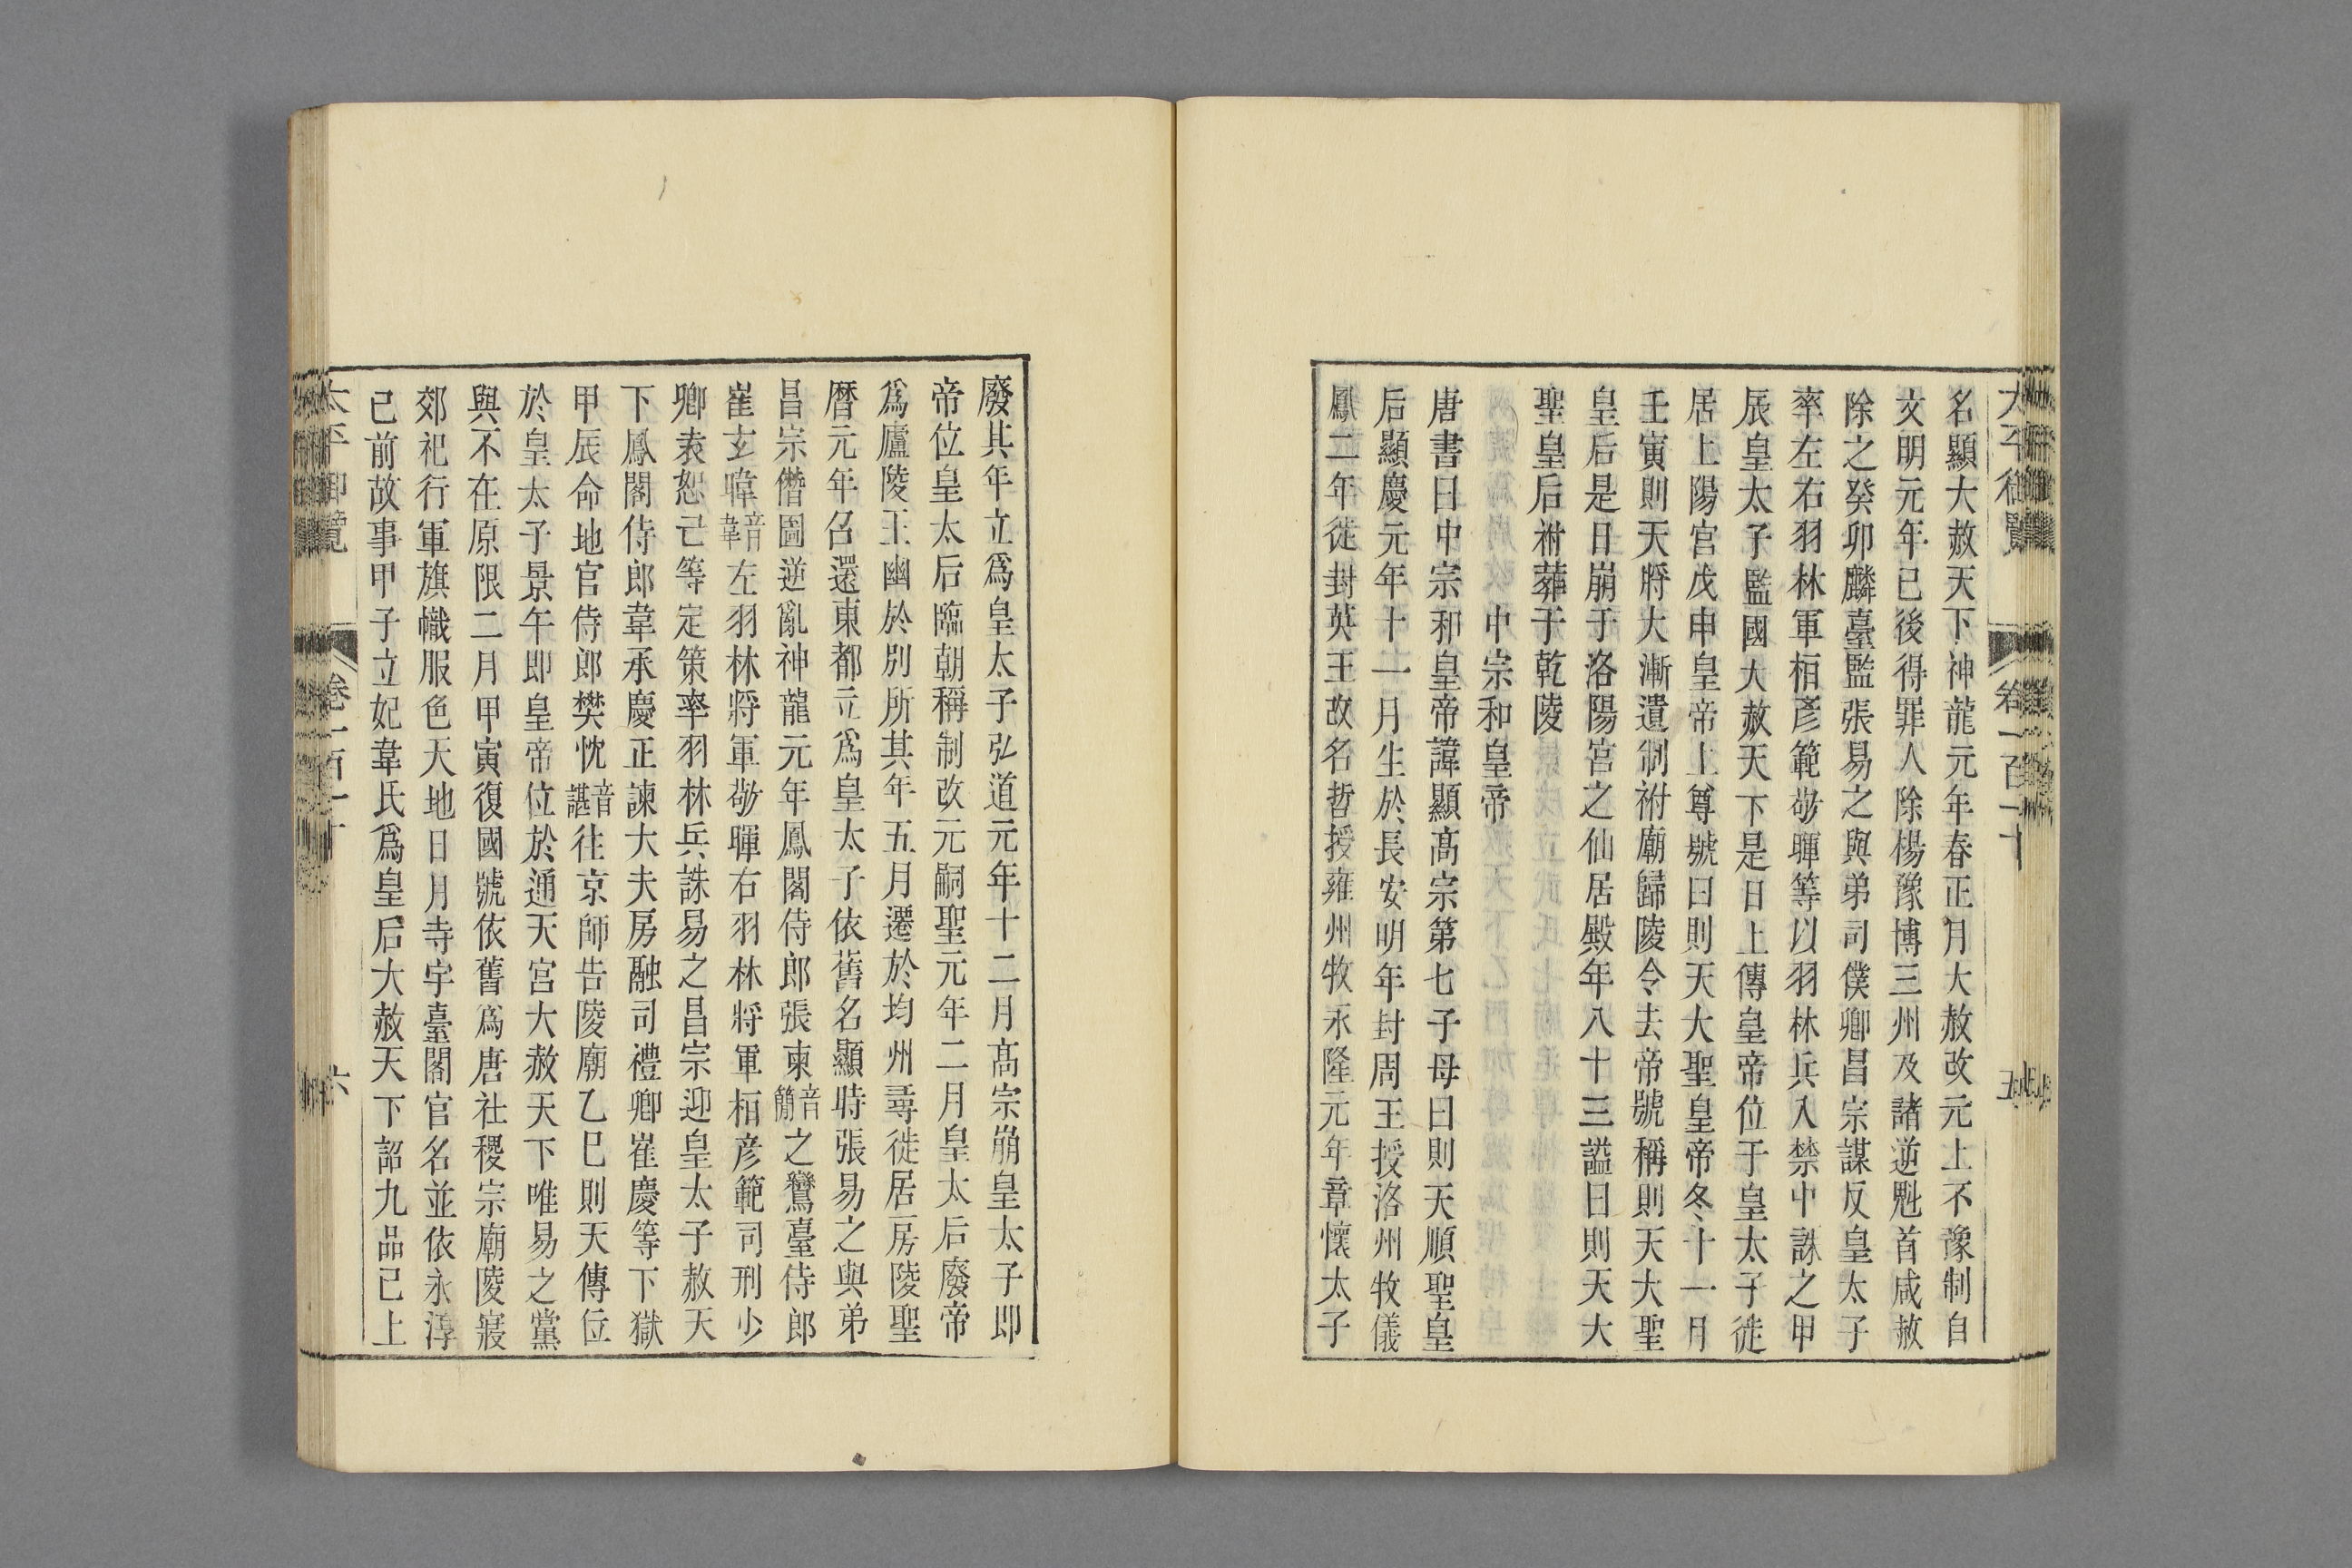 名顯大赦天下神龍元年春正月大赦改元上不豫制自
文明元年已後得罪人除楊豫博三州及諸逆魁首咸赦
除之癸卯麟臺監張易之與弟司僕卿昌宗謀反皇太子
率左右羽林軍桓彥範敬暉等以羽林兵入禁中誅之甲
辰皇太子監國大赦天下是日上傳皇帝位于皇太子徙
居上陽宮戊申皇帝上尊號曰則天大聖皇帝冬十一月
壬寅則天將大漸遺制祔廟歸陵令去帝號稱則天大聖
皇后是日崩于洛陽宮之仙居殿年八十三謚曰則天大
聖皇后祔葬于乾陵
中宗和皇帝
唐書曰中宗和皇帝諱顯髙宗第七子母曰則天順聖皇
后顯慶元年十一月生於長安明年封周王授洛州牧儀
鳳二年徙封英王改名哲授雍州牧永隆元年章懷太子
廢其年立爲皇太子弘道元年十二月髙宗崩皇太子即
帝位皇太后臨朝稱制改元嗣聖元年二月皇太后廢帝
爲廬陵王幽於別所其年五月遷於均州尋徙居房陵聖
曆元年召還東都立爲皇太子依舊名顯時張易之與弟
昌宗僭圖逆亂神龍元年鳳閣侍郎張柬音簡之鸞臺侍郎
崔玄暐音韋左羽林將軍敬暉右羽林將軍桓彥範司刑少
卿袁恕己等定策率羽林兵誅易之昌宗迎皇太子赦天
下鳳閣侍郎韋承慶正諫大夫房融司禮卿崔慶等下獄
甲辰命地官侍郎樊忱音諶往京師告陵廟乙巳則天傳位
於皇太子景午即皇帝位於通天宮大赦天下唯易之黨
與不在原限二月甲寅復國號依舊爲唐社稷宗廟陵寢
郊祀行軍旗幟服色天地日月寺宇臺閣官名並依永淳
已前故事甲子立妃韋氏爲皇后大赦天下詔九品已上